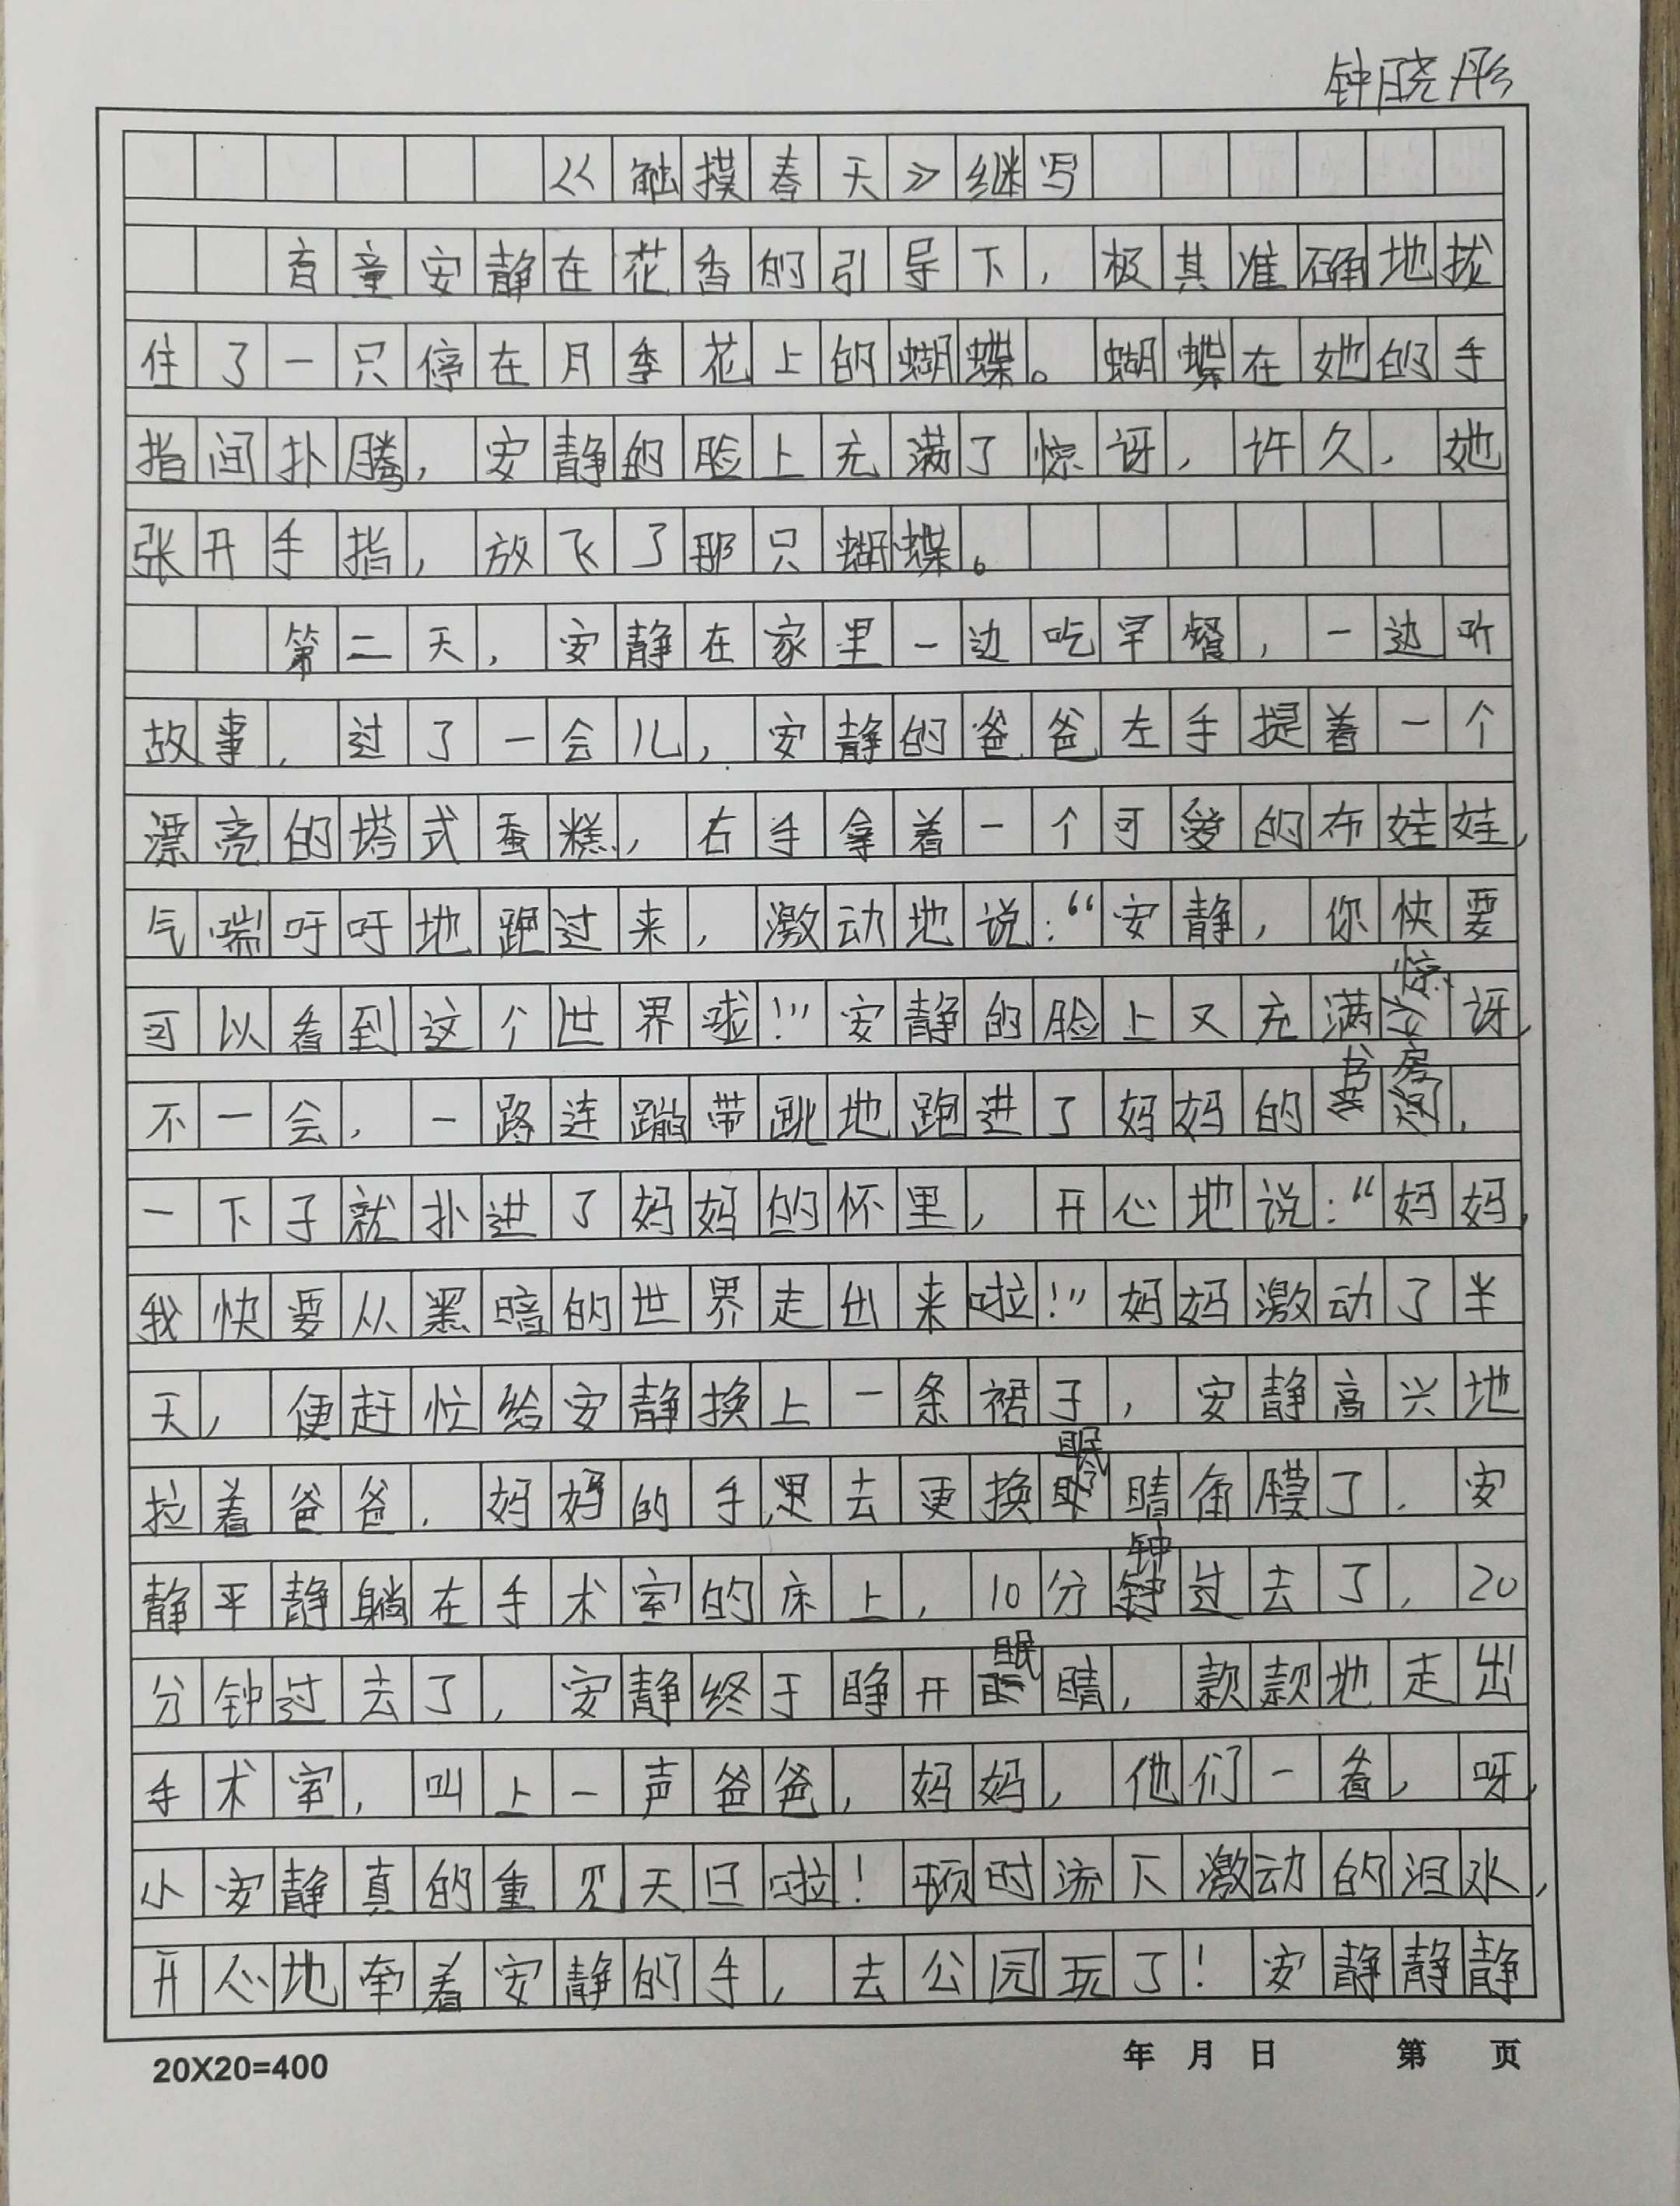 钟晓彤
《触摸春天》继写
盲童安静在花香的引导下，极其准确地拢
住了一只停在月季花上的蝴蝶。蝴蝶在她的手
指间扑腾，安静的脸上充满了惊讶，许久，她
张开手指，放飞了那只蝴蝶。
第二天，安静在家里一边吃早餐，一边听
故事，过了一会儿，安静的爸爸左手提着一个
漂亮的塔式蛋糕，右手拿着一个可爱的布娃娃，
气喘吁吁地跑过来，激动地说：“安静，你快要
可以看到这个世界啦！”安静的脸上又充满惊讶，
不一会，一路连蹦带跳地跑进了妈妈的书房，
一下子就扑进了妈妈的怀里，开心地说：“妈妈，
我快要从黑暗的世界走出来啦！”妈妈激动了半
天，便赶忙给安静换上一条裙子，安静高兴地
拉着爸爸，妈妈的手，去更换眼睛角膜了，安
静平静躺在手术室的床上，10分钟过去了，20
分钟过去了，安静终于睁开眼睛，款款地走出
手术室，叫上一声爸爸，妈妈，他们一看，呀，
小安静真的重见天日啦！顿时流下激动的泪水，
开心地牵着安静的手，去公园玩了！安静静静
20X20=400 年 月 日 第 页